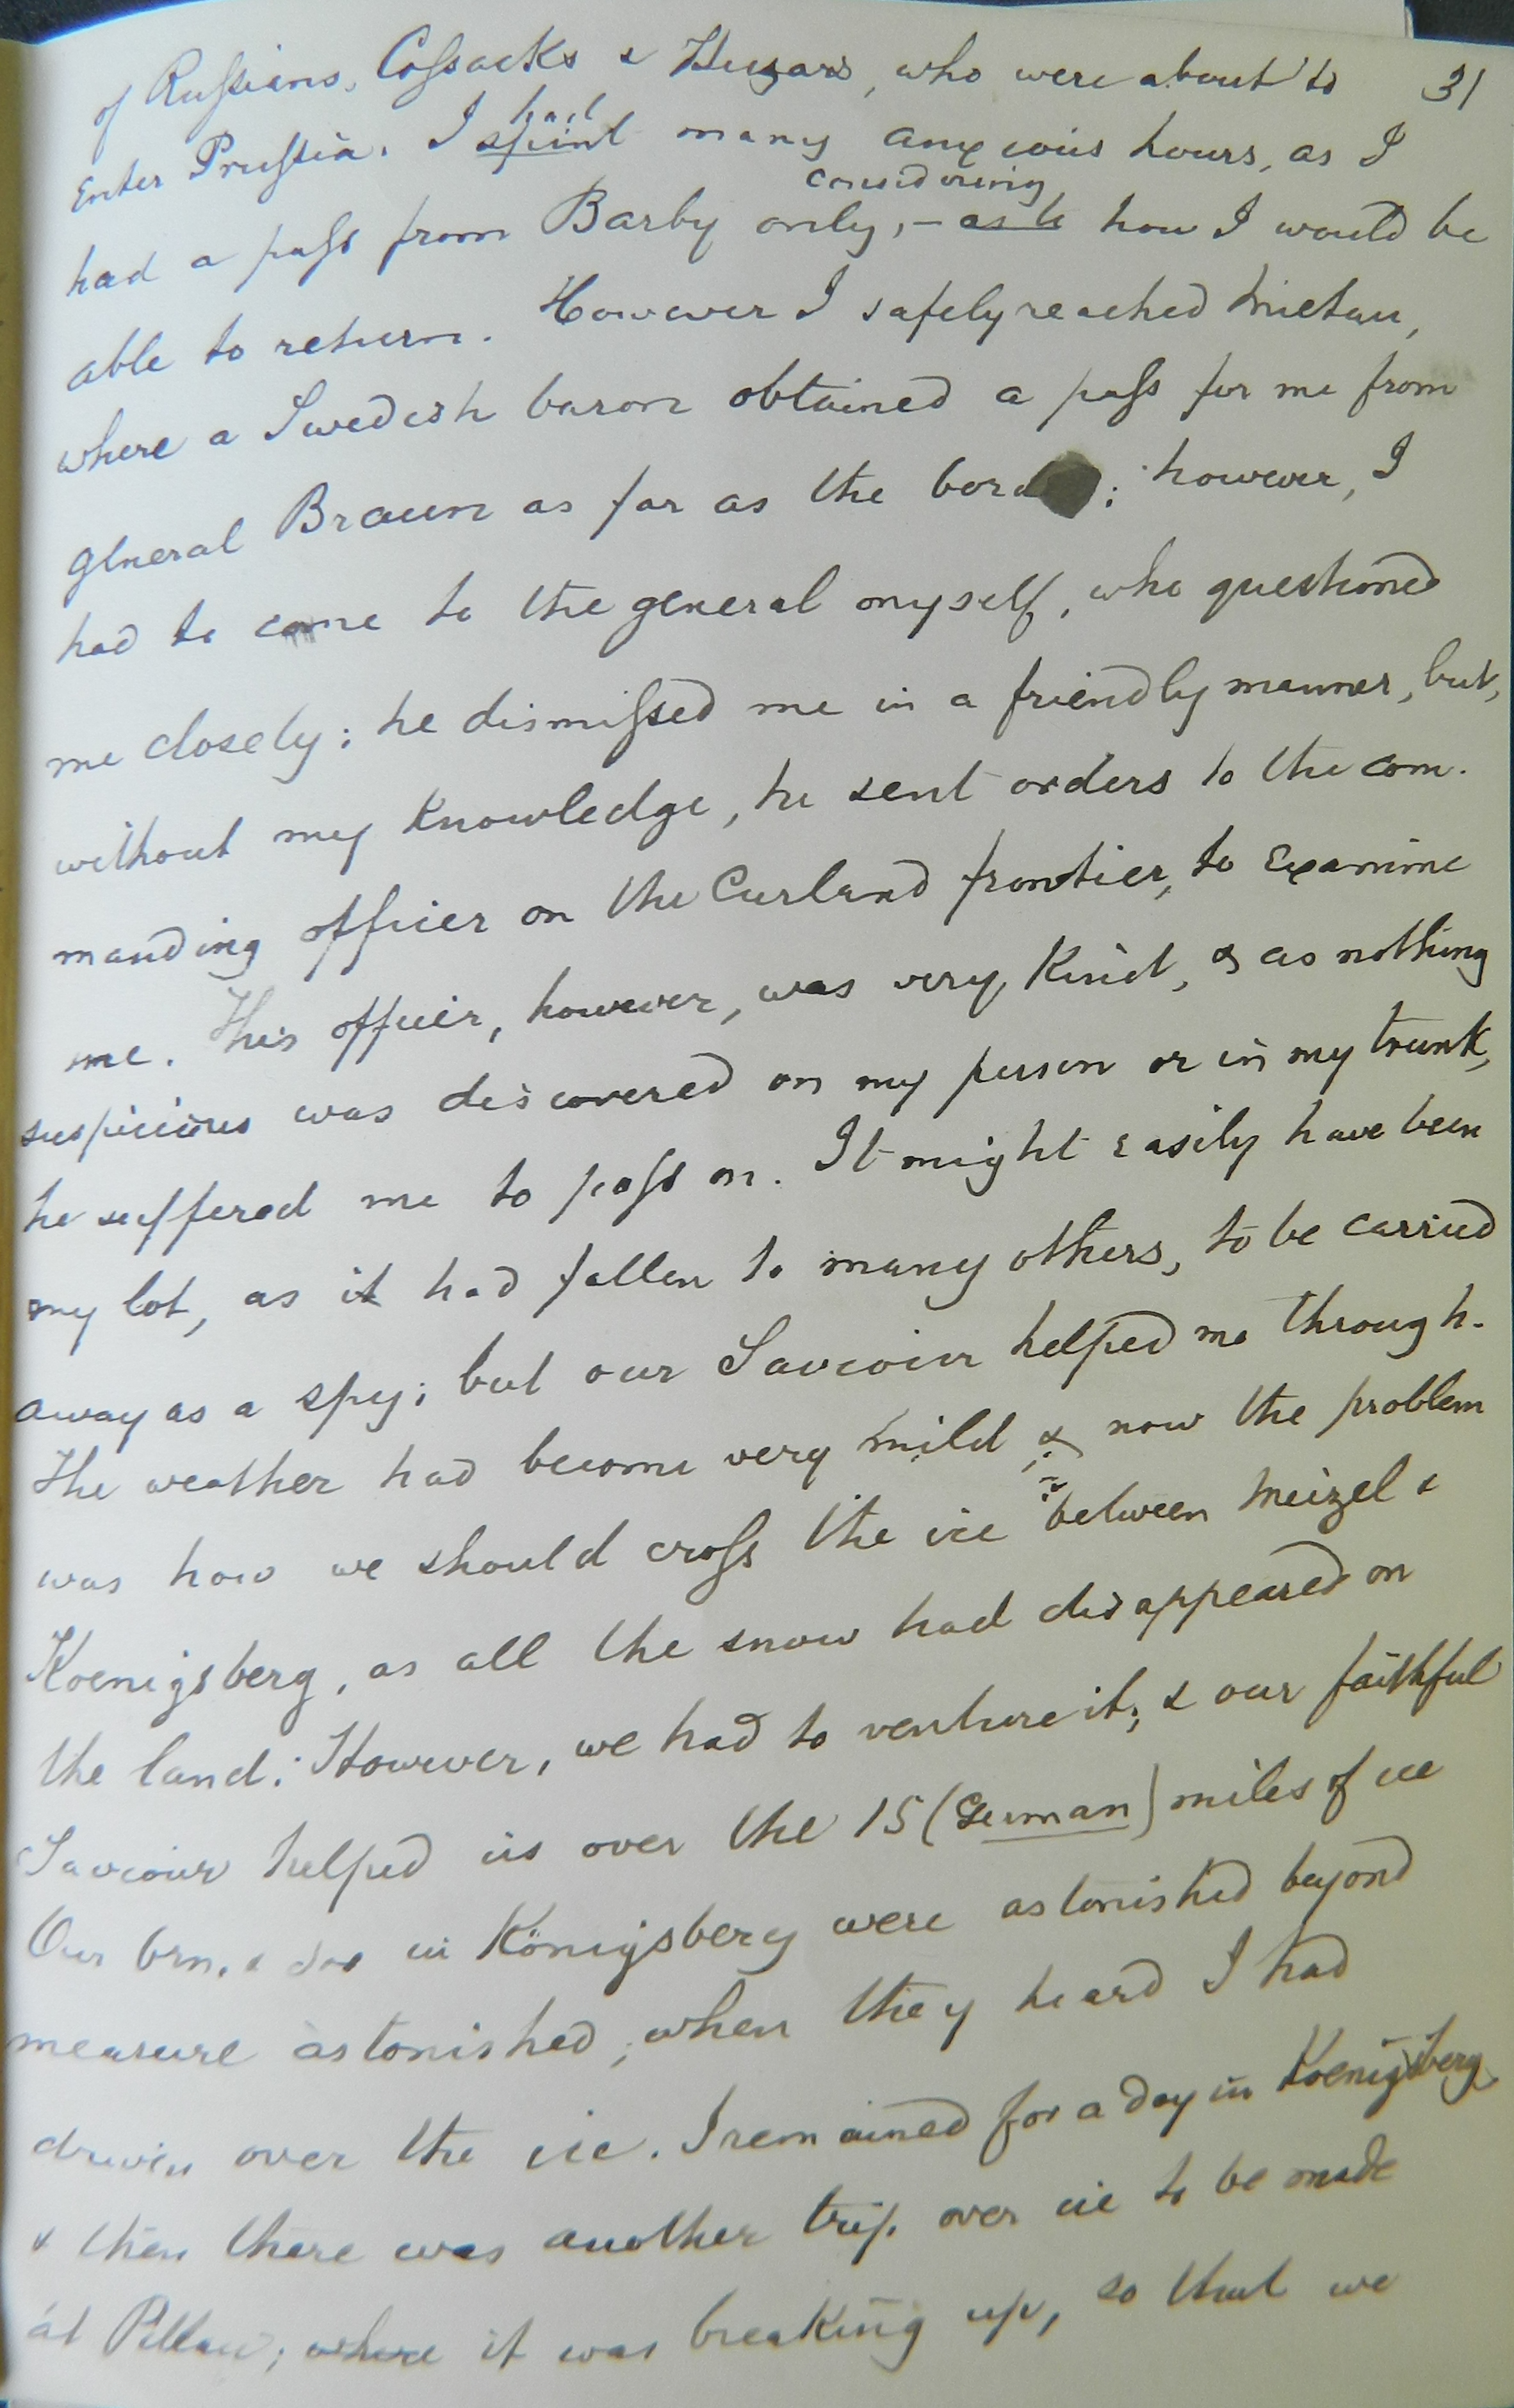 31
of Rußians, Coßacks & Huzars, who were about to
had
enter Prußia. I spent many anxious hours, as I
considering
had a paß from Barby only, – as to how I would be
able to return. However I safely reached Mietau,
where a Swedish baron obtained a paß for me from
general Braun as far as the bord ; however, I
had to come to the general myself, who questioned
me closely; he dismißed me in a friendly manner, but,
without my knowledge, he sent orders to the com-
manding officer on the Curland frontier, to examine
me. This officer, however, was very kind, & as nothing
suspicious was discovered on my person or in my trunk,
he suffered me to paß on. It might easily have been
my lot, as it had fallen to many others, to be carried
away as a spy; but our Saviour helped me through.
The weather had become very mild & now the problem
was how we should croß the ice between Meizel &
Koenigsberg, as all the snow had disappeared on
the land. However, we had to venture it; & our faithful
Saviour helped us over the 15 (German) miles of ice
Our brn. & srs in Königsberg were astonished beyond
measure astonished, when they heard I had
driven over the ice. I remained for a day in Koenigsberg
& then there was another trip over ice to be made
at Pillau; where it was breaking up, so that we